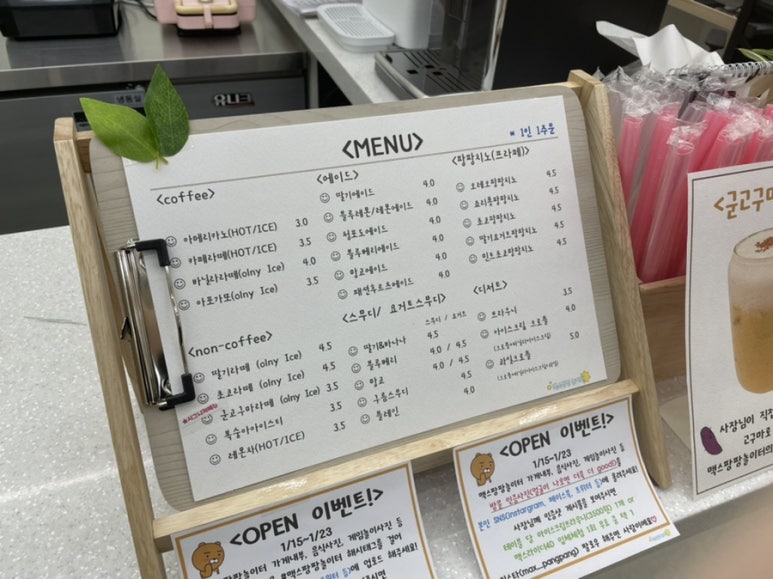 <MENU>
* 1인 1주문
<coffee>
아메리아노(HOT/ICE) 3.0
아페라떼(HOT/ICE) 3.5
바닐라라떼(olny Ice) 4.0
아포가또(olny Ice) 3.5
<non-coffee>
딸기라떼 (olny Ice) 4.5
초코라떼 (olny Ice) 4.5
군고구마라떼 (olny Ice) 3.5
복숭아아이스티 3.5
레몬차(HOT/ICE) 3.5
<에이드>
딸기에이드 4.0
블루레몬/레몬에이드 4.0
청포도에이드 4.0
블루베리에이드 4.0
망고에이드 4.0
패션후르츠에이드 4.0
<스무디/ 요거트스무디>
스무디 / 요거트
딸기&바나나 4.0 / 4.5
블루베리 4.0 / 4.5
망고 4.5
구름스무디 4.5
플레인 4.0
<팡팡치노(프라페)>
오레오팡팡치노 4.5
초코팡팡치노 4.5
딸기요거트팡팡치노 4.5
민트초코팡팡치노 4.5
<디저트>
브라우니 3.5
아이스크림 크로플 4.5
5.0
<OPEN 이벤트!>
1/15~1/23
맥스팡팡놀이터 가게내부, 음식사진, 게임놀이사진 등
<OPEN 이벤트!>
1/15~1/23
맥스팡팡놀이터 가게내부, 음식사진, 게임놀이사진 등
본인 SNS(Instargram, 페이스북, 트위터 등)에 올려주세요!
사장님께 인증샷 게시물을 보여주시면
(max_pangpang) 팔로우 해주면 사장이에요
<군고구마
사장님이 직접
고구마로
맥스팡팡놀이터의
유니크